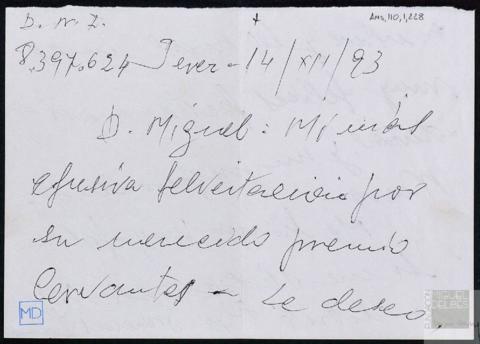 D. N. I.
AMD,110,1,228
8.397.624 Jever - 14/XII/93
D. Miguel: Mi más
efusiva felicitación por
su merecido premio
Cervantes - Le deseo
MD